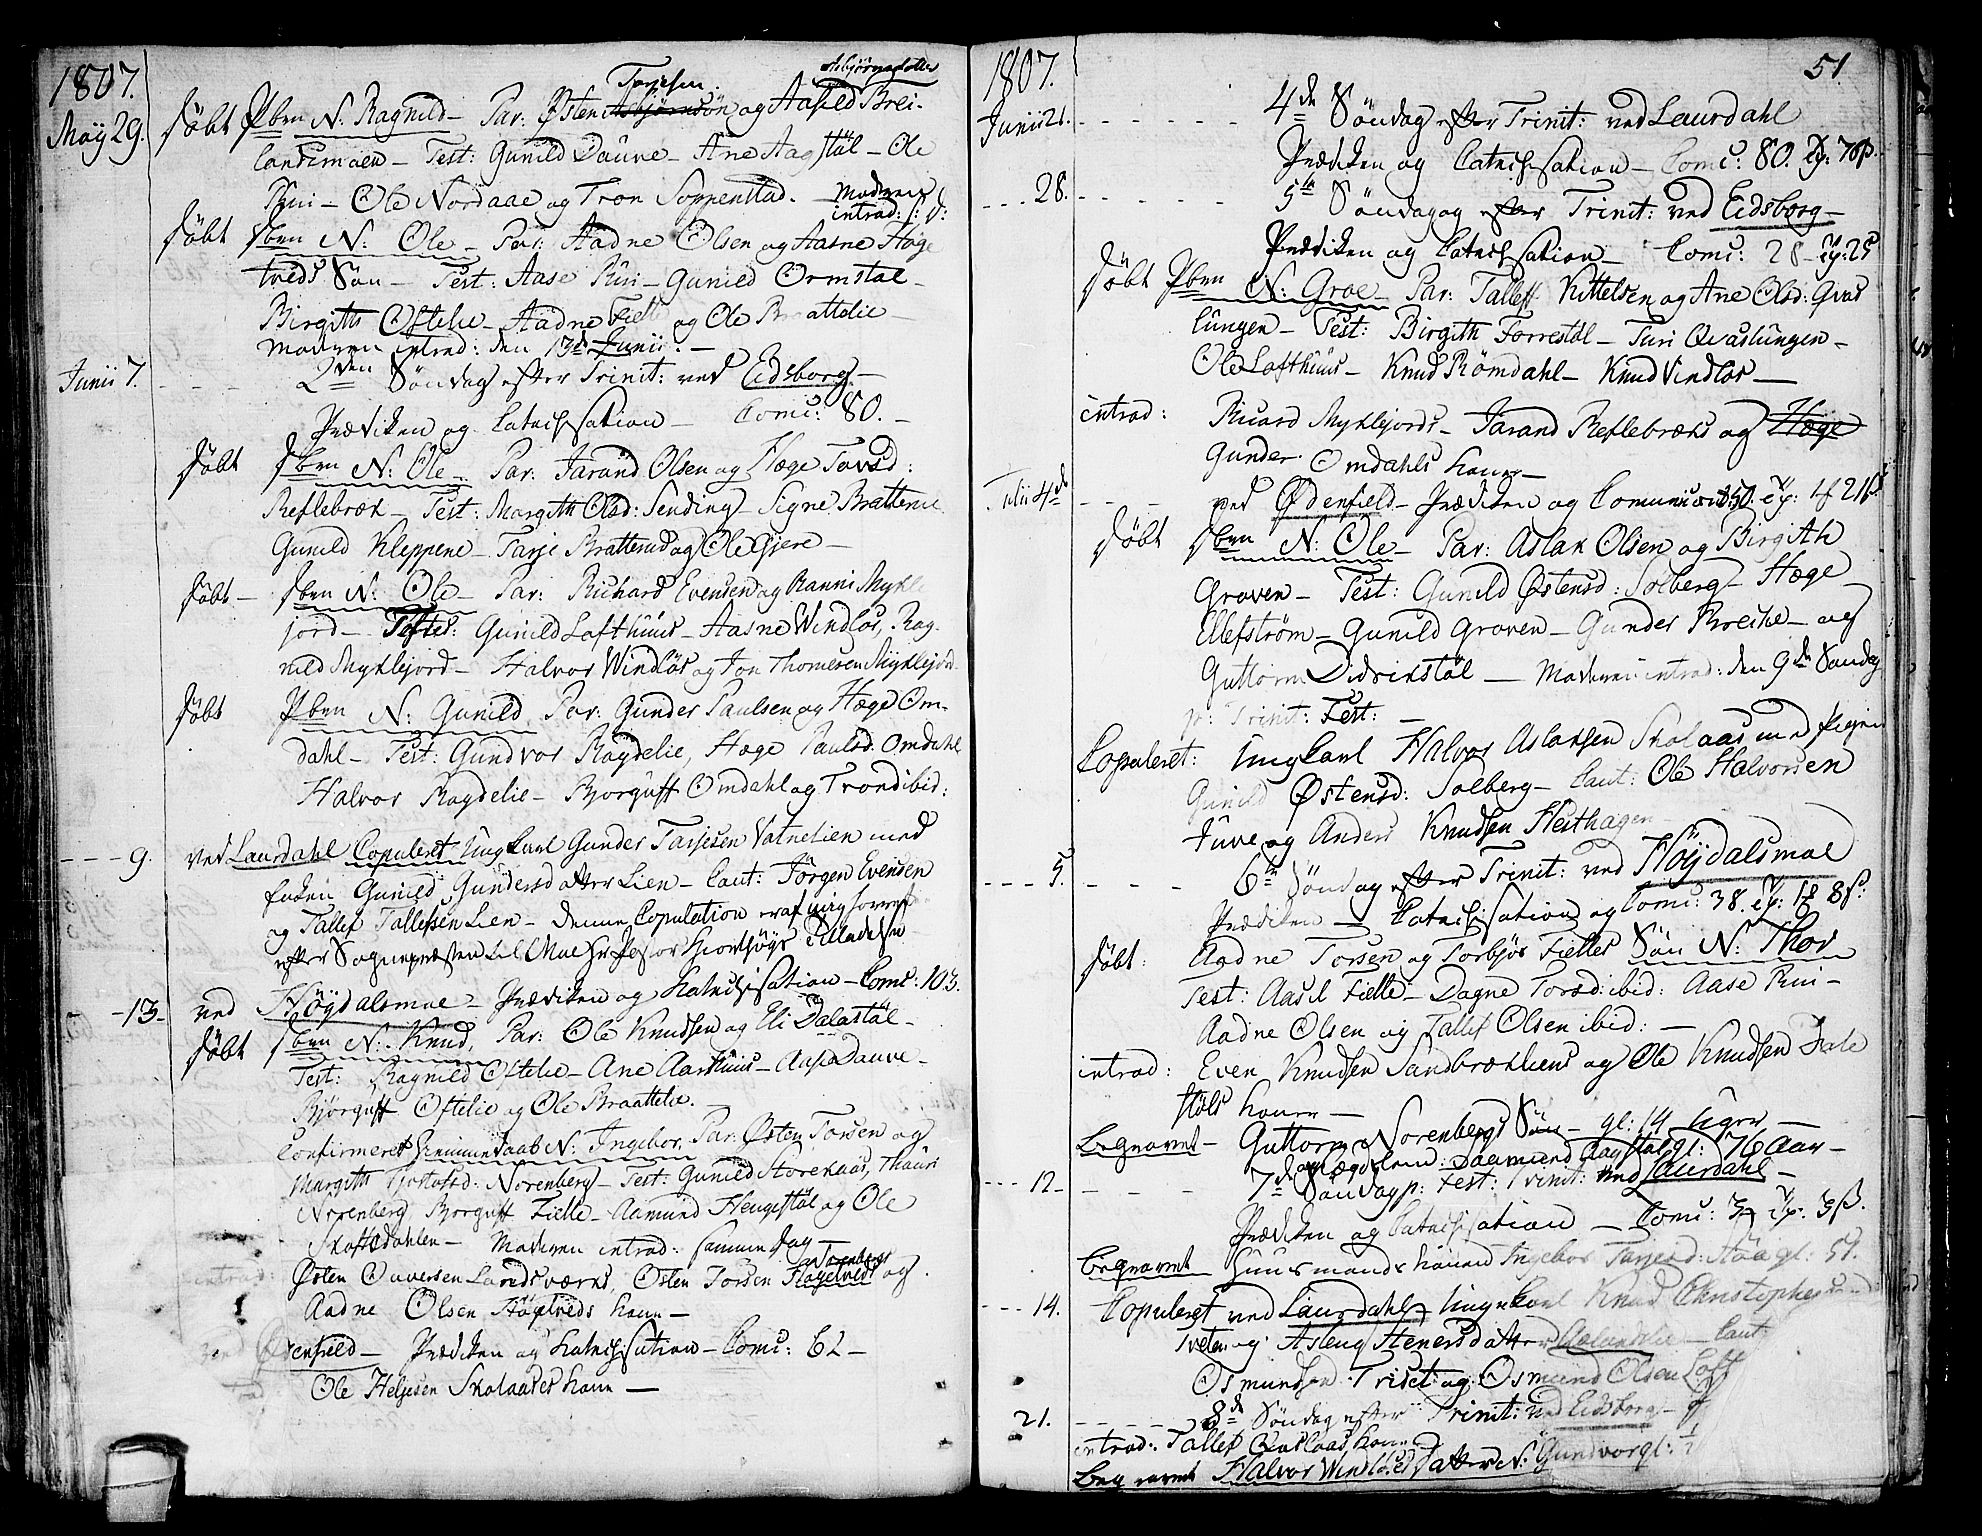 1807.
Tarjesen Asbjørnsdotter
May 29. døbt Pben N: Ragnild – Par: Østen Asbjørnsøn og Aasild Brei-
landsmoen – Test: Gunild Dauve – Ane Aagstøl – Ole
Rui – Ole Nordaae og Tron Soppenstad. – Moderen
intrad: s: d:
døbt dben N: Ole – Par: Aadne Olsen og Aasne Høge
tveds Søn – Test: Aase Rui – Gunild Ormstøl –
Birgith Oftelie – Aadne Fielle og Ole Braattelie –
Moderen intrad: den 13d Junii. –
Junii 7. 2den Søndag efter Trinit: ved Eidsborg –
Prædiken og Catechisation – Comu: 80. –
døbt dben N: Ole – Par: Jarand Olsen og Hæge Tovsd:
Reflebræk – Test: Margith Olsd: Sending – Signe Bratterud
Gunild Kleppene – Tarje Bratterud og Ole Gjere –
døbt – dben N: Ole – Par: Richard Evensen og Ranni Mykle
jord – Testes: Gunild Lofthuus – Aasne Windlos, Rag-
nild Myklejord – Halvor Windlos og Jon Thomesen Myklejord
døbt Pben N: Gunild Par: Gunder Paulsen og Hæge Om-
dahl – Test: Gundvor Røydelie, Hæge Paulsd. Omdahl
Halvor Røydelie – Bjorguff Omdahl og Trond ibid:
– – – 9. ved Laurdahl Copuleret Ungkarl Gunder Tarjesen Vatnelien med
Enken Gunild Gundersdatter Lien – Caut: Jørgen Evensen
og Tallef Tallefsen Lien – denne Copulation er af mig forret
efter Sognepræsten til Moe Hr Pastor Hiorthøys Tilladelse
– – 13 – ved Høydalsmoe – Prædiken og Katechisation – Comu: 103.
døbt dben N: Knud, Par: Ole Knudsen og Eli Dalastøl –
Test: Ragnild Oftelie – Ane Aarhuus – Aasa Dauve –
Bjorguff Oftelie og Ole Braattelie. –
Confirmeret Hiemmedaab N: Ingebor Par: Østen Torsen og
Margith Tjostolsd: Norenberg – Test: Gunild Storekaas, Thuri
Norenberg Bjorguff Fielle – Aamund Heugestøl og Ole
Skaftsdahlen – Moderen intrad: samme dag –
Norenbergs
intrad: Østen Ouversen Landsværks, Østen Torsen Høgetveds og
Aadne Olsen Høgetveds Koner –
Ødenfield – Prædiken og Katechisation – Comu: 62 –
Ole Heljesen Skolaases Kone –
1807. 51
Junii 21. – – – – – – 4de Søndag efter Trinit: ved Laurdahl
Prædiken og Catechisation – Comu: 80.
– – – 28. – – – – – 5te Søndag efter Trinit: ved Eidsborg –
Prædiken og Catechisation – Comu: 28
døbt Pben N: Groe – Par: Tallef Kittelsen og Ane Olsd: Qvas
lungen – Test: Birgith Forrestøl – Turi Qvaslungen –
Ole Lofthuus – Knud Rømdahl – Knud Vindlos –
intrad: Ricard Myklejords – Jarand Reflebræks og Hæge
Gunder Omdahls Koner –
Julii 4de – – – ved Ødenfield – Prædiken og Comunicat: 50.
døbt dben N: Ole – Par: Aslak Olsen og Birgith
Groven – Test: Gunild Østensd: Solberg – Hæge
Ellefstrøm – Gunild Groven – Gunder Breike – og
Guttorm Didrikstøl – Moderen intrad: den 9de Søndag
p: Trinit: Fest: –
Copuleret: Ungkarl Halvor Aslaksen Skolaas med Pigen
Gunild Østensd: Solberg – Caut: Ole Halvorsen
Juve og Anders Knudsen Hesthagen
– – – 5. – – – – 6te Søndag efter Trinit: ved Høydalsmoe
Prædiken – Catechisation og Comu: 38.
døbt: Aadne Torsen og Torbjør Fielles Søn N: Thor
Test: Aasil Fielle – Dagne Torsd: ibid: Aase Rui –
Aadne Olsen og Tallef Olsen ibid: –
intrad: Even Knudsen Sandbrækkens og Ole Knudsen Dale
støls Koner –
Begravet – Guttorm Norenbergs Søn – gl: 14 Uger –
Aamund Aagstøl gl: 76 Aar –
– – – 12 – – – – 7de Søndag p: Fest: Trinit: ved Laurdahl –
Prædiken og Catechisation – Comu:
Begravet Huusmands Konen Ingebor Tarjesd: gl: 59.
– – – 14. Copuleret ved Laurdahl – Ungekarl Knud Christophersen
Tveten og Asleug Stenersdatter – Caut:
Osmundsen Triset og Osmund Olsen Loft
21. – – – – – 8de Søndag efter Trinit: ved Eidsborg –
intrad: Tallef Kone
Begravet Halvor Windloses Datter N: Gundvor gl: